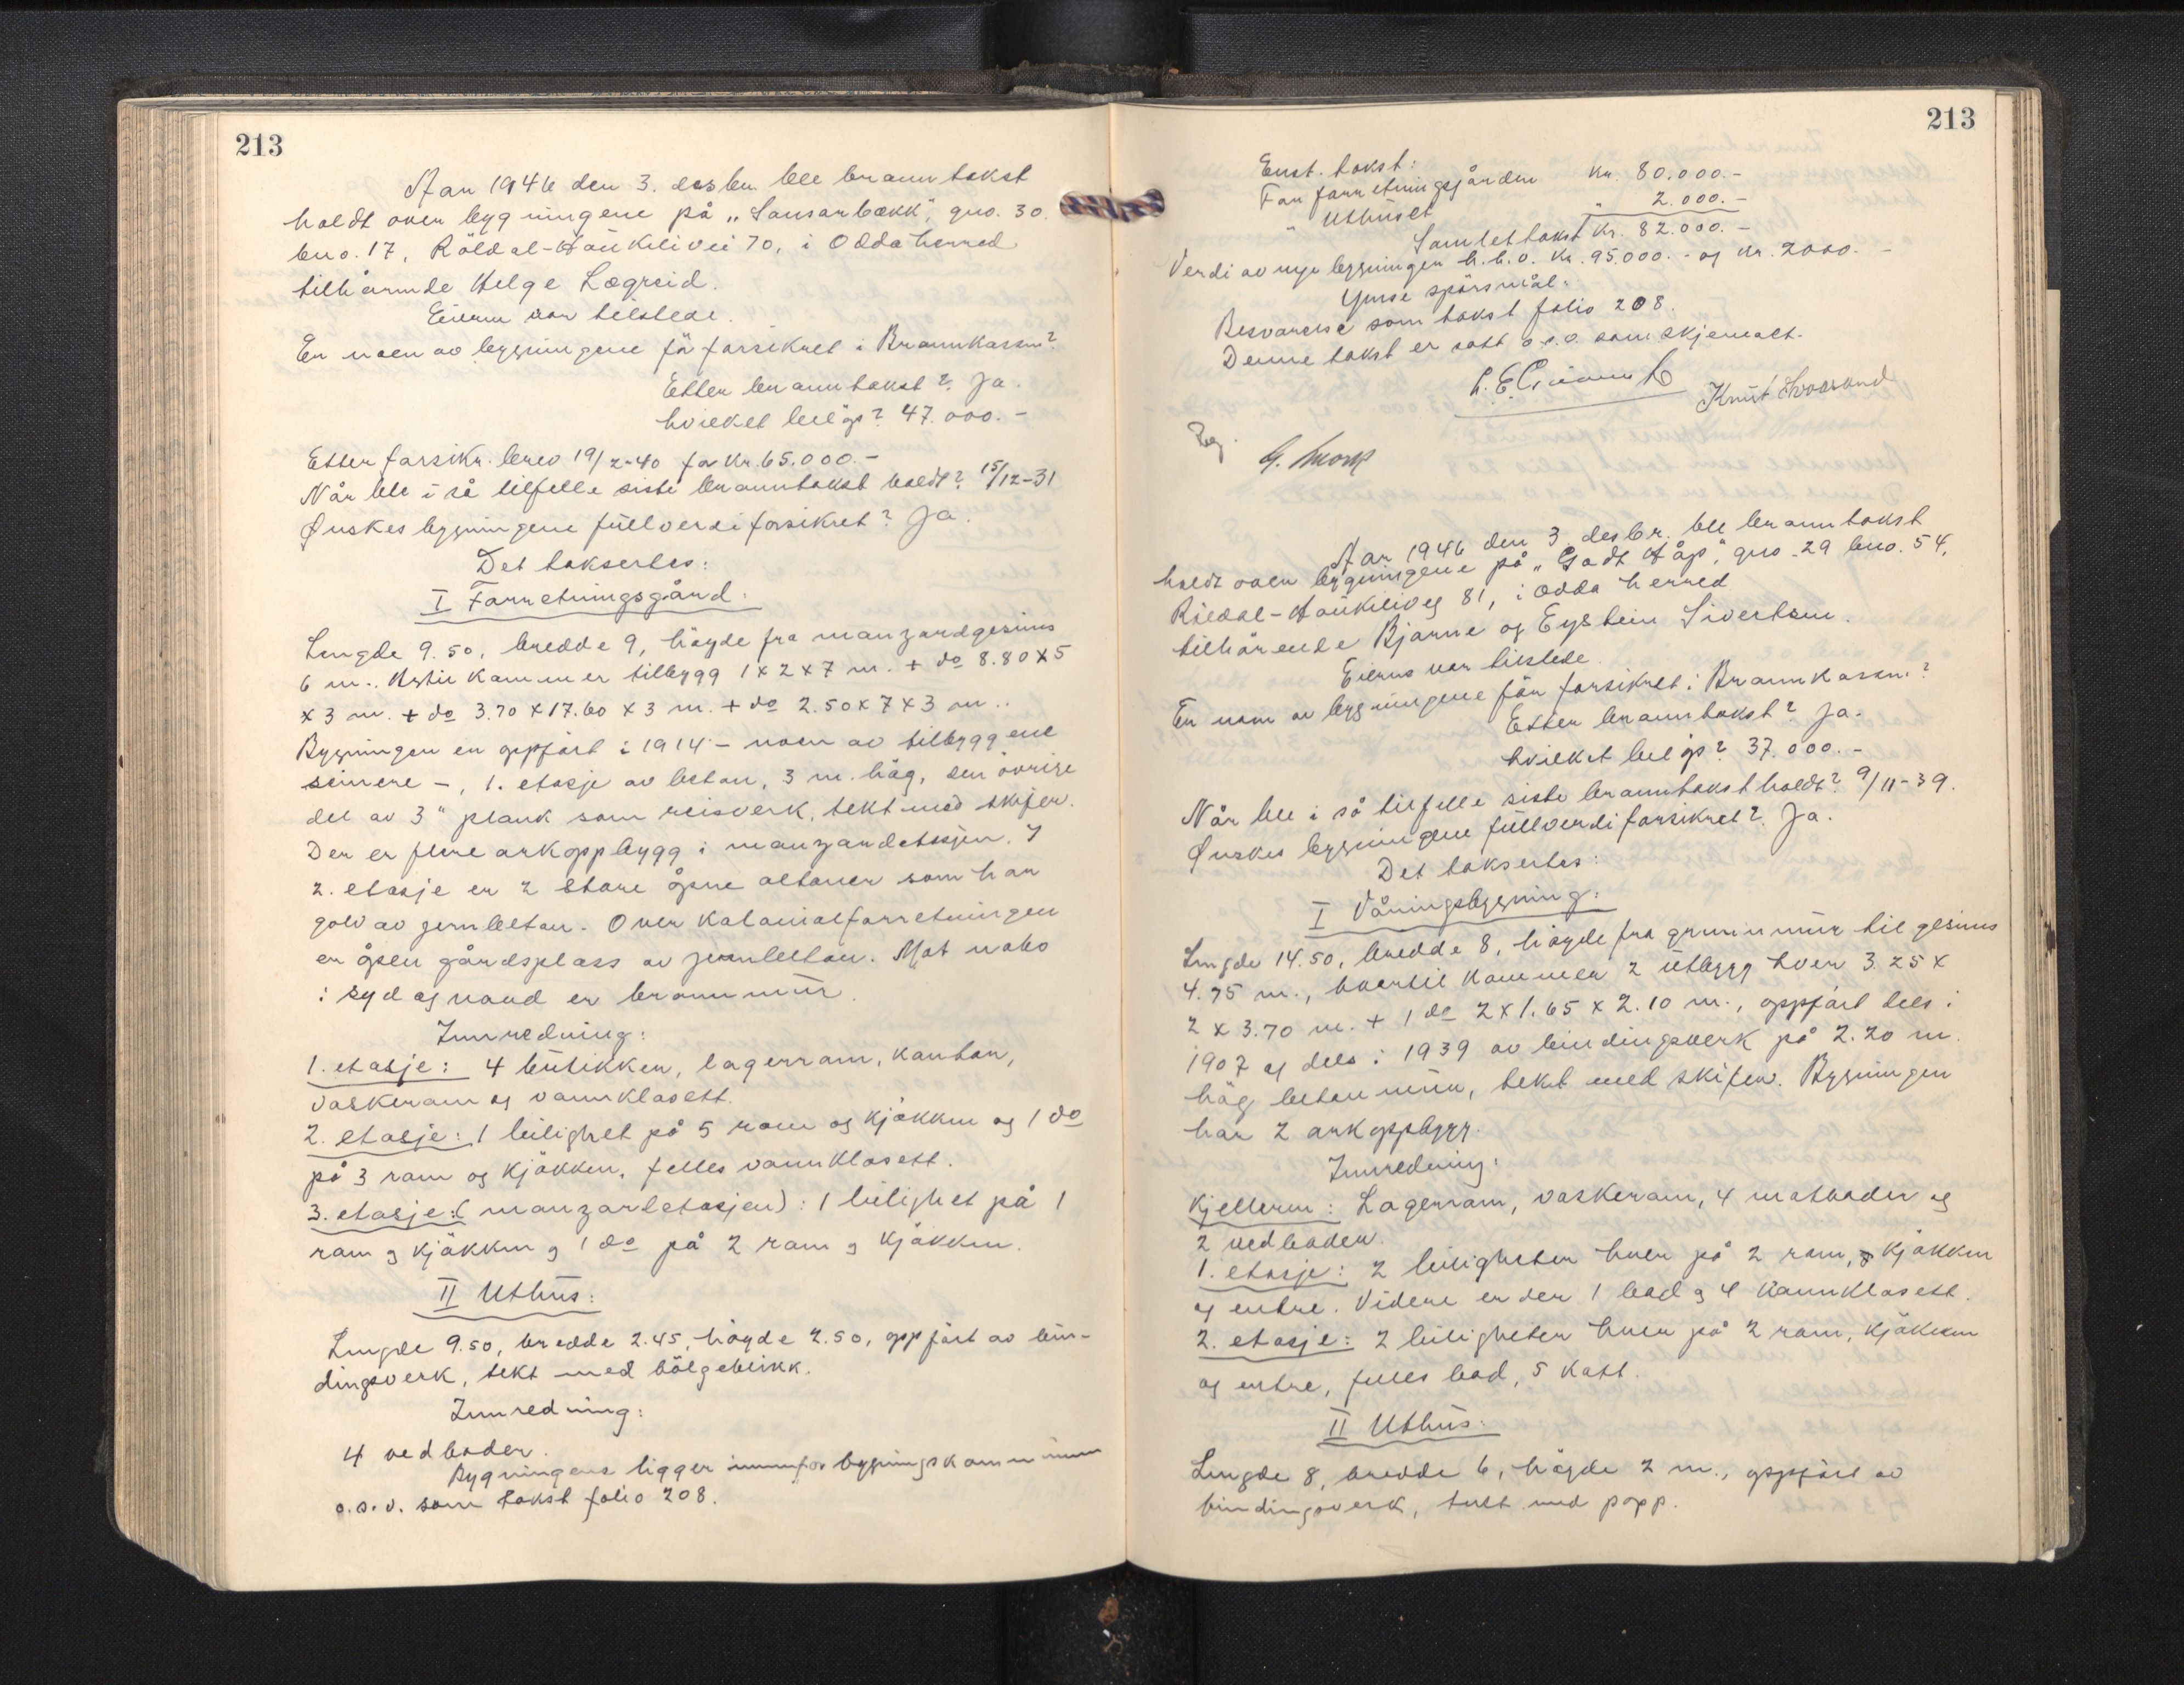 213
Aar 1946 den 3. desbr. ble branntakst
holdt over bygningene på „Sansarbækk", gno. 30.
bno. 17, Röldal-Haukelivei 70, i Odda herred
tilhörende Helge Lægreid.
Eieren var tilstede.
Er noen av bygningene fö forsikret i Brannkassen?
Etter branntakst? Ja.
hvilket belöp? 47.000.-
Etter forsikr. brev 19/2-40 for kr. 65.000.-
Når ble i så tilfelle siste branntakst holdt? 15/12-31
Ønskes bygningene fullverdiforsikret? Ja.
Det takserles:
I Forretningsgård:
Lengde 9.50, bredde 9, höyde fra manzardgesims
6 m.. Hertil kommer tilbygg 1 x 2 x 7 m. + do 8.80 x 5
x 3 m. + do 3.70 x 17.60 x 3 m. + do 2.50 x 7 x 3 m..
Bygningen er oppfört i 1914 - noen av tilbyggene
seinere -, 1. etasje av betan, 3 m. hög, den övrige
del av 3" plank som reisverk, tekt med skifer.
Der er flere arkoppbygg i manzardetasjen. I
2. etasje er 2 store åpne altaner som har
golv av jernbetan. Over kolonialforretningen
er åpen gårdsplass av jernbetan. Mot nabo
i syd og nord er brannmur.
Innredning:
1. etasje: 4 butikker, lagerrom, kontor,
vaskerom og vannklosett.
2. etasje: 1 leilighet på 5 rom og kjökken og 1 do
på 3 rom og kjökken, felles vannklosett.
3. etasje: (manzardetasjen): 1 leilighet på 1
rom og kjökken og 1 do på 2 rom og kjökken.
II Uthus:
Lengde 9.50, bredde 2.45, höyde 2.50, oppfört av bin-
dingsverk, tekt med bölgeblikk.
Innredning:
4 vedboder.
Bygningene ligger innenfor bygningskommunen
o.s.v. som takst folio 208.
213
Enst. takst:
For forretningsgården kr. 80.000.-
" Uthuset " 2.000.-
Samlet takst kr. 82.000.-
Verdi av nye bygninger h.b.o. kr. 95.000.- og kr. 2000.-
Ymse spörsmål:
Besvarelse som takst folio 208.
Denne takst er satt o.s.v. som skjemaet.
Knut
Aar 1946 den 3. desbr. ble branntakst
holdt over bygningene på „Godt Håp", gno. 29 bno. 54,
Röldal-Haukeliveg 81, i Odda herred
tilhörende Bjarne og Eystein Sivertsen.
Eierne var tilstede.
Er noen av bygningene för forsikret i Brannkassen?
Etter branntakst? Ja.
hvilket belöp? 37.000.-
Når ble i så tilfelle siste branntakst holdt? 9/11-39.
Ønskes bygningene fullverdiforsikret? Ja.
Det takserles:
I Våningsbygning:
Lengde 14.50, bredde 8, höyde fra grunnmur til gesims
4.75 m., hvortil kommer 2 utbygg hver 3.25 x
2 x 3.70 m. + 1 do 2 x 1.65 x 2.10 m., oppfört dels i
1907 og dels i 1939 av bindingsverk på 2.20 m.
hög betan mur, tekt med skifer. Bygningen
har 2 arkoppbygg.
Innredning:
Kjelleren: Lagerrom, vaskerom, 4 matboder og
2 vedboder.
1. etasje: 2 leiligheter hver på 2 rom, kjökken
og entre. Videre er der 1 bad og 4 vannklosett.
2. etasje: 2 leiligheter hver på 2 rom, kjökken
og entre, felles bad, 5 kott.
II Uthus:
Lengde 8, bredde 6, höyde 2 m., oppfört av
bindingsverk, tekt med papp.